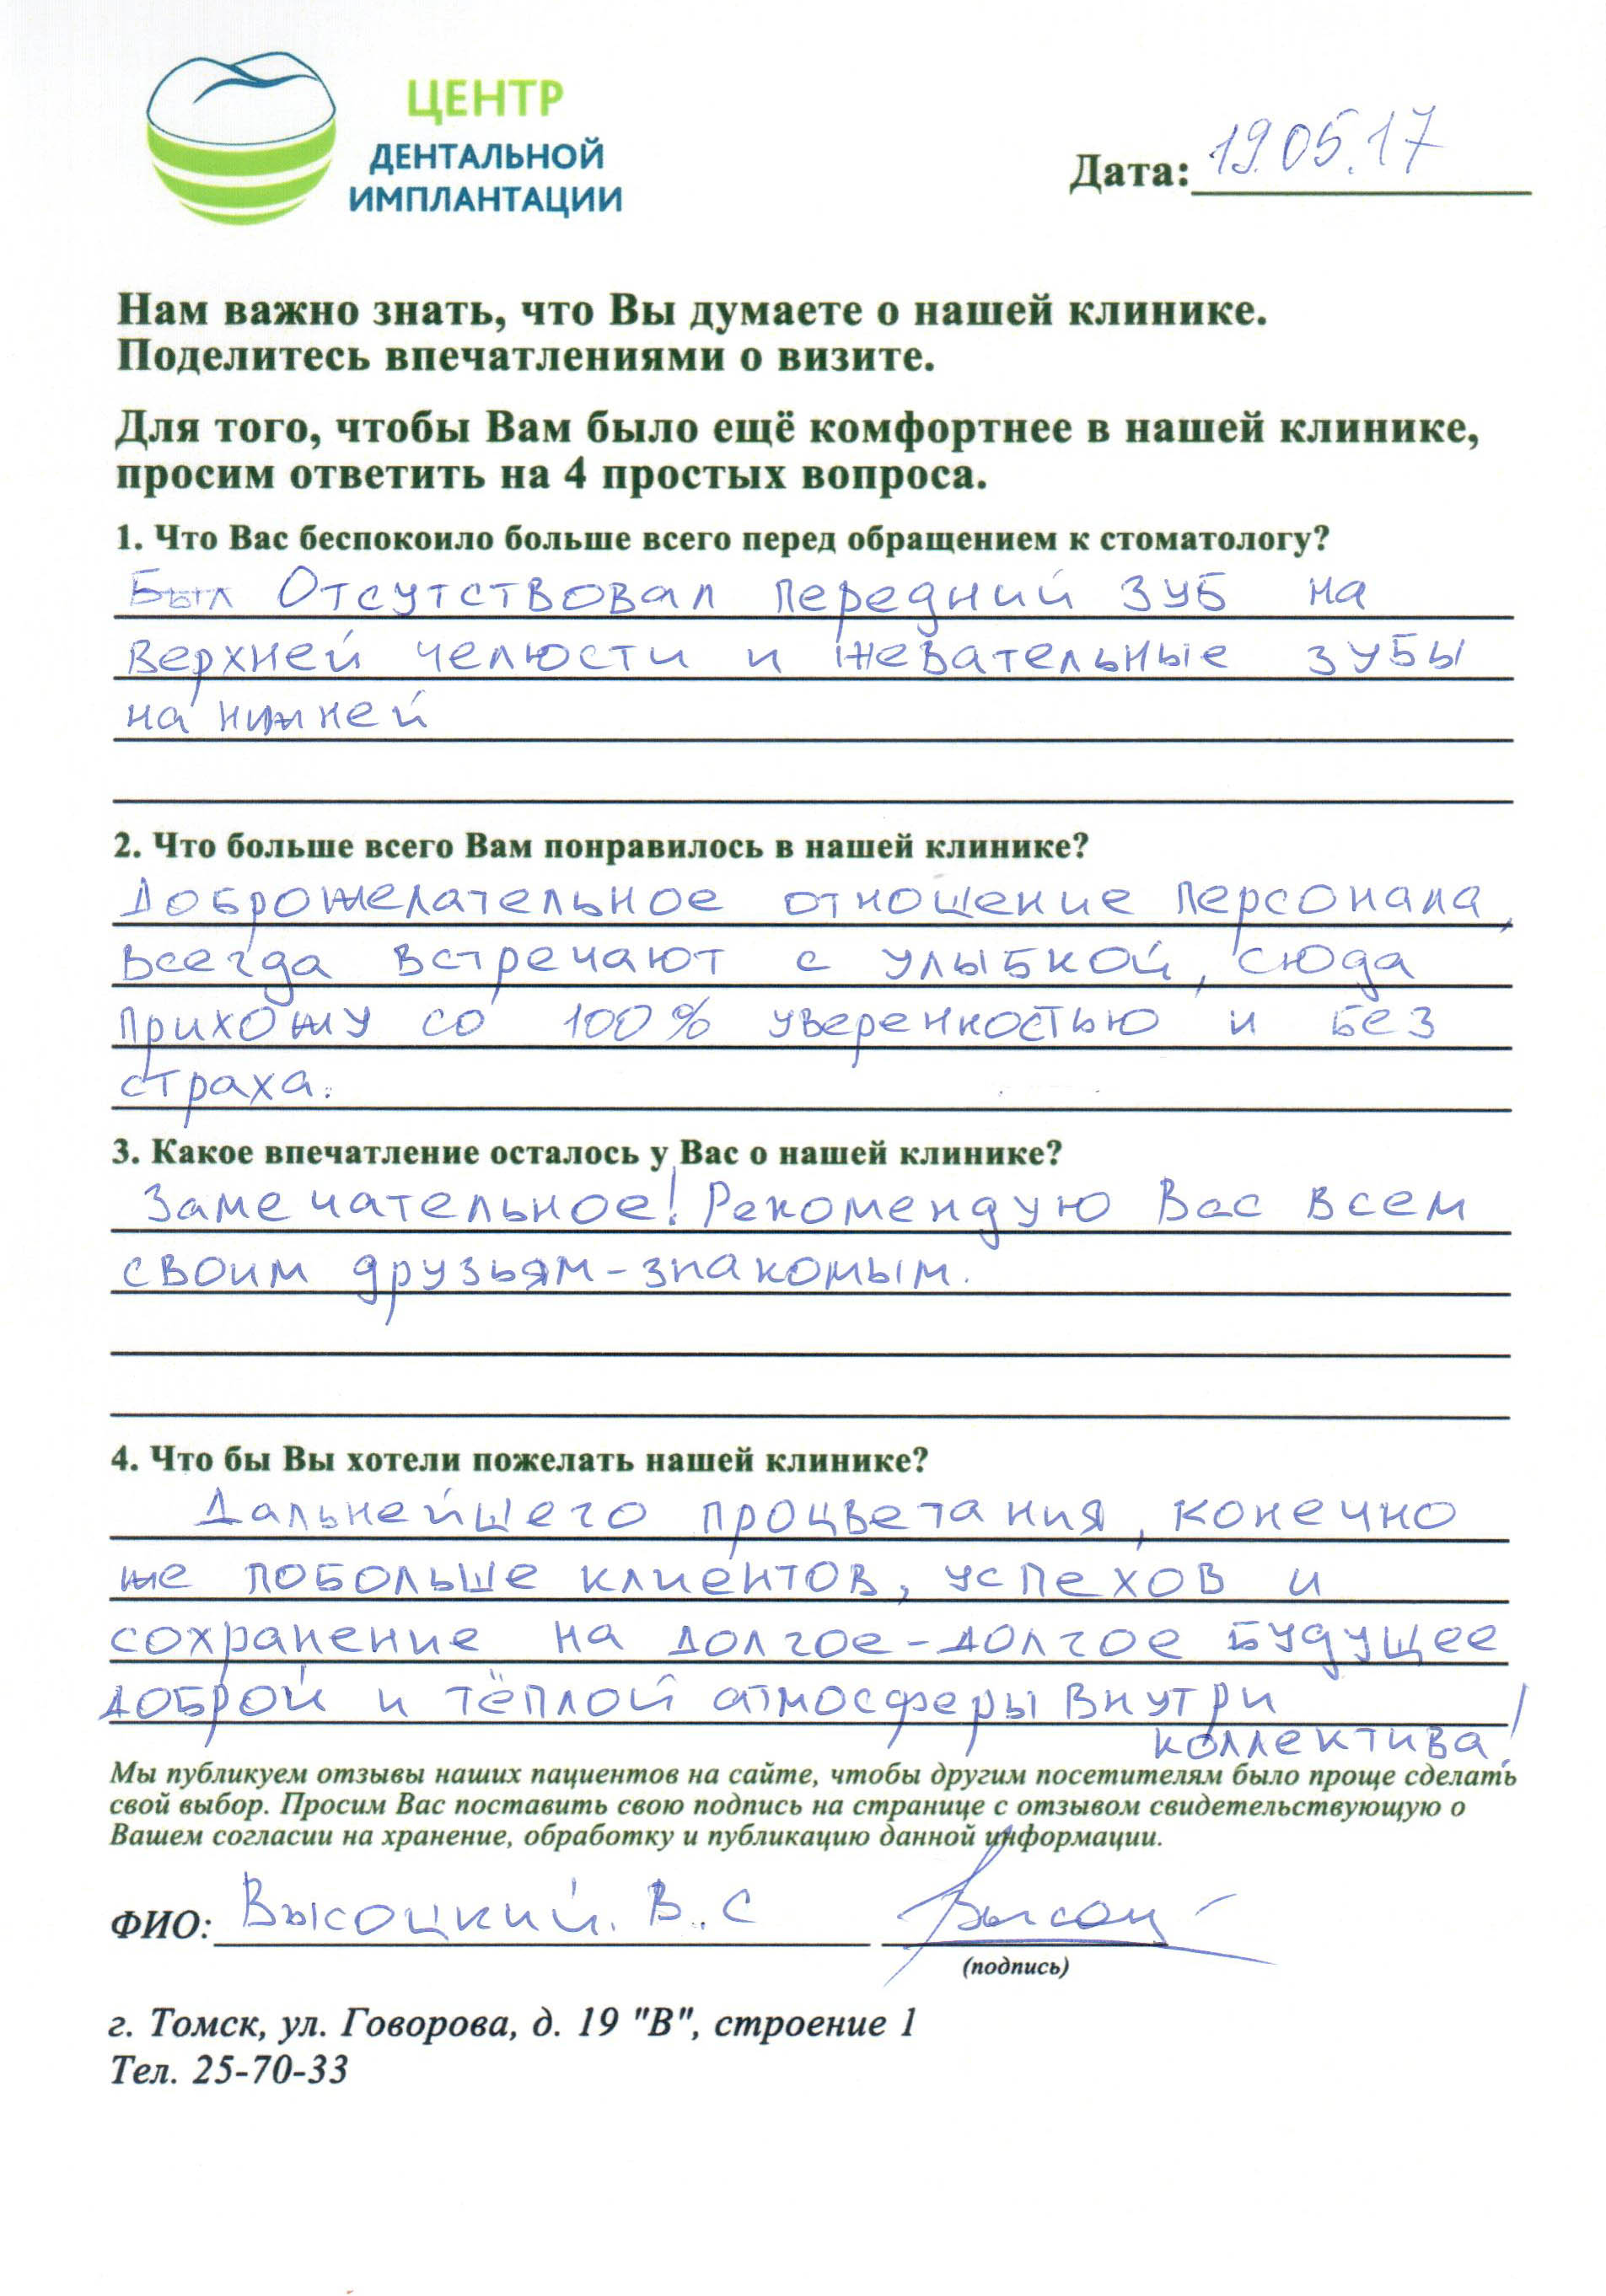 ЦЕНТР
ДЕНТАЛЬНОЙ
ИМПЛАНТАЦИИ
Дата: 19.05.17
Нам важно знать, что Вы думаете о нашей клинике.
Поделитесь впечатлениями о визите.
Для того, чтобы Вам было ещё комфортнее в нашей клинике,
просим ответить на 4 простых вопроса.
1. Что Вас беспокоило больше всего перед обращением к стоматологу?
Был Отсутствовал передний зуб на
верхней челюсти и жевательные зубы
на нижней
2. Что больше всего Вам понравилось в нашей клинике?
Доброжелательное отношение персонала,
всегда встречают с улыбкой, сюда
прихожу со 100% уверенностью и без
страха.
3. Какое впечатление осталось у Вас о нашей клинике?
Замечательное! Рекомендую Вас всем
своим друзьям-знакомым.
4. Что бы Вы хотели пожелать нашей клинике?
Дальнейшего процветания, конечно
же побольше клиентов, успехов и
сохранение на долгое-долгое будущее
доброй и тёплой атмосферы внутри
коллектива!
Мы публикуем отзывы наших пациентов на сайте, чтобы другим посетителям было проще сделать
свой выбор. Просим Вас поставить свою подпись на странице с отзывом свидетельствующую о
Вашем согласии на хранение, обработку и публикацию данной информации.
ФИО: Высоцкий. В.. С Высоц
(подпись)
г. Томск, ул. Говорова, д. 19 "В", строение 1
Тел. 25-70-33